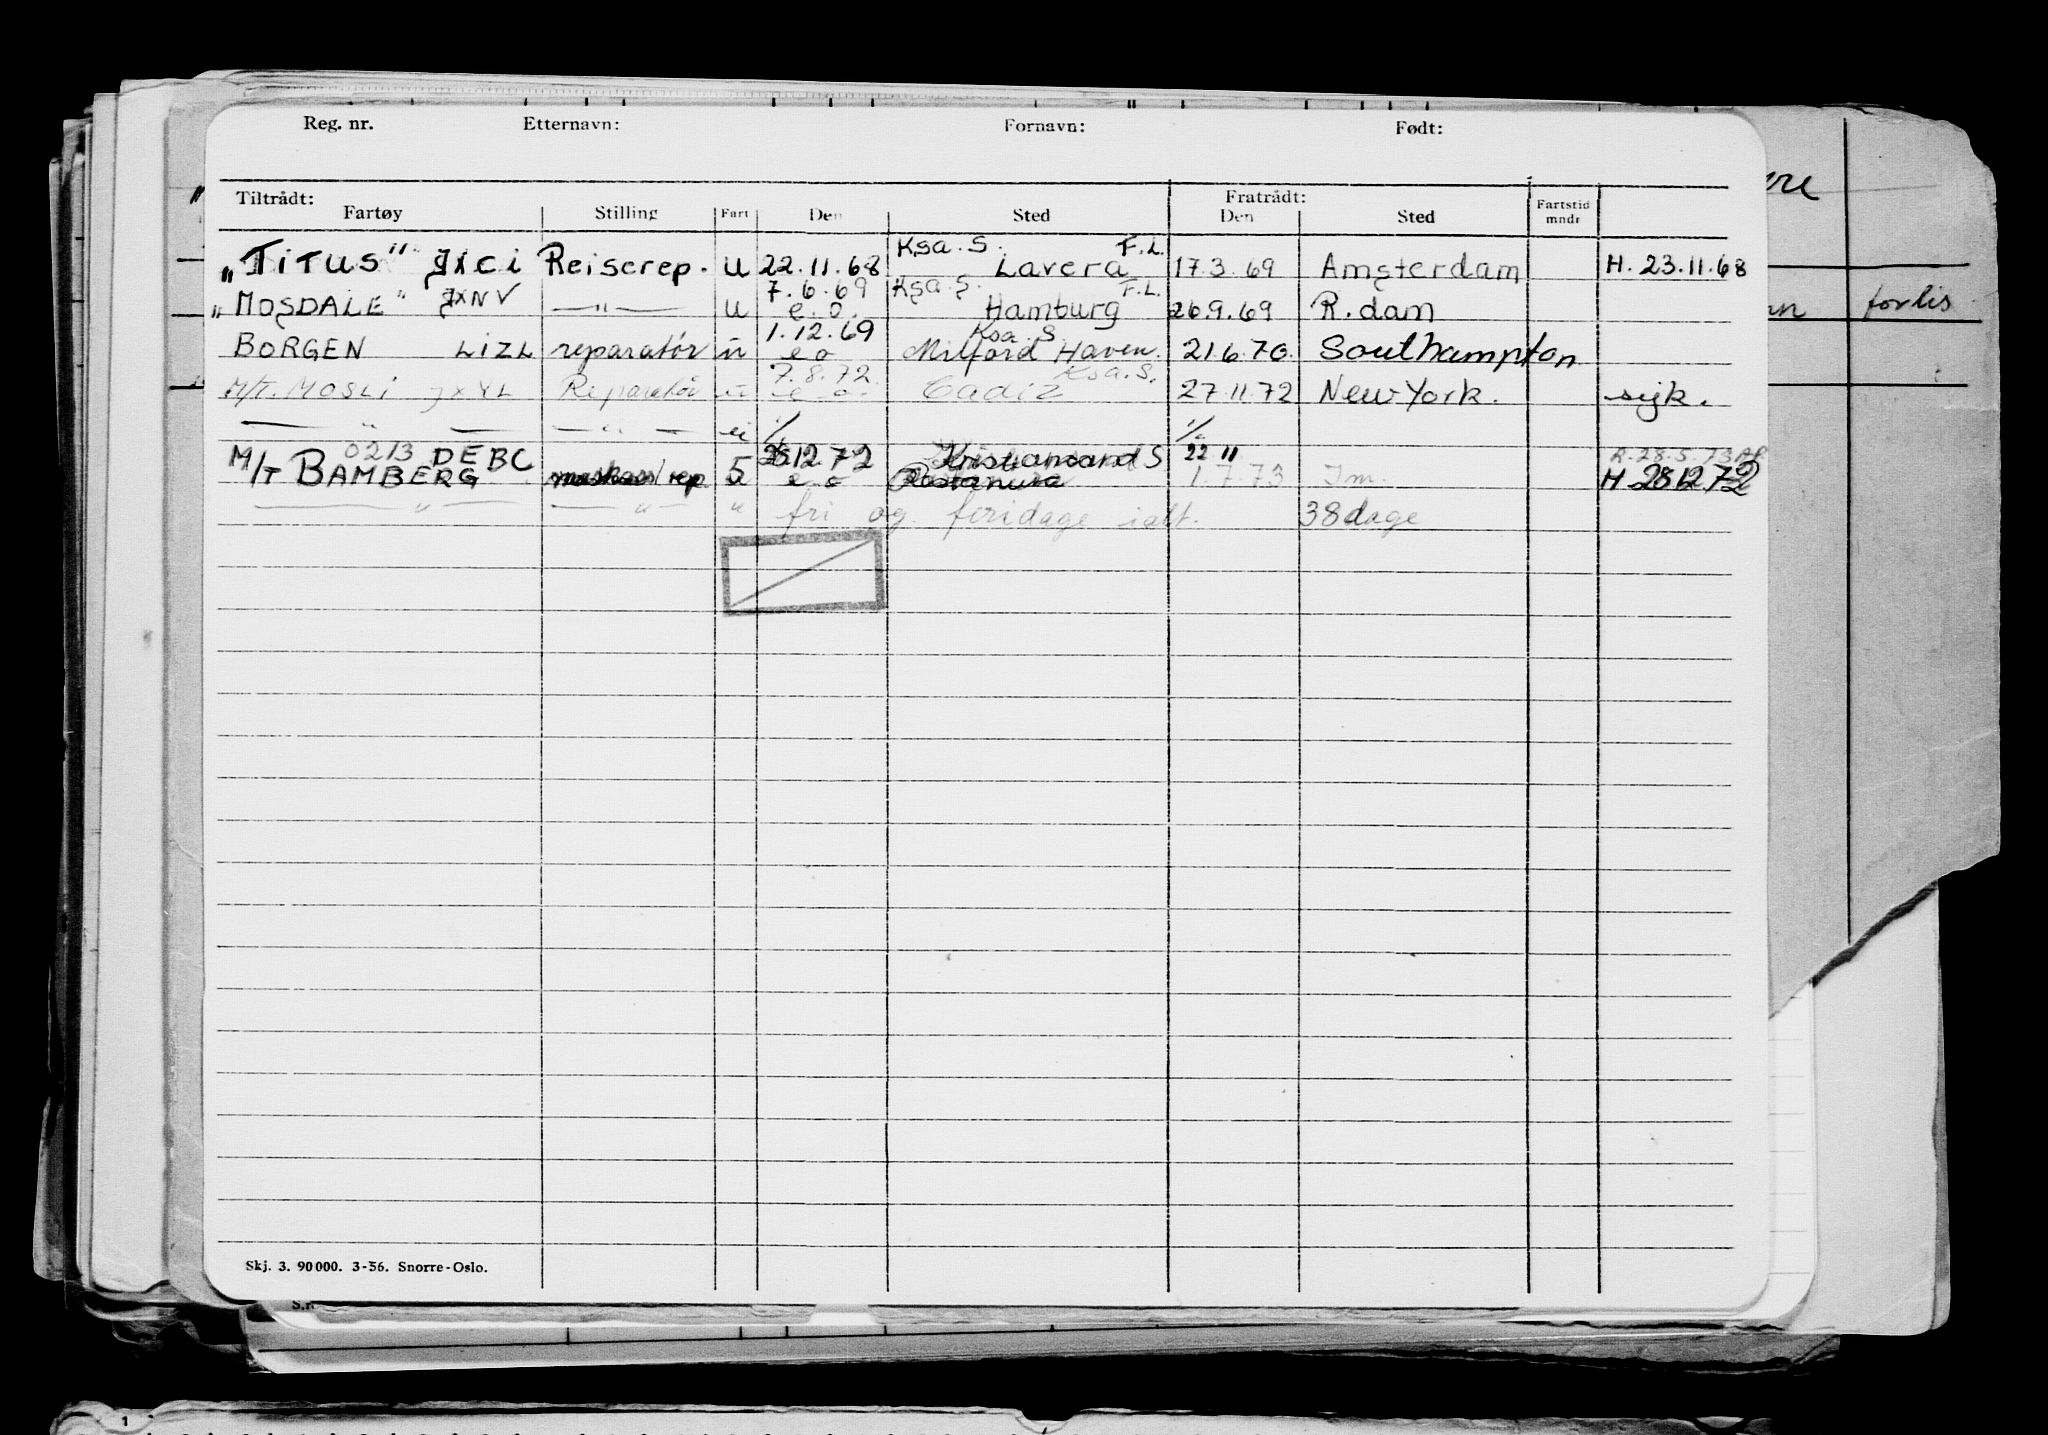 Reg. nr. Etternavn: Fornavn: Født:
Tiltrådt: Fratrådt:
Fartøy Stilling Fart Den Sted Den Sted Fartstid mndr
Ksa. S. F.L.
"TITUS" JXCI Reiserep. U 22.11.68 Lavera 17.3.69 Amsterdam H. 23.11.68
7.6.69 Ksa. S. F.L.
"MOSDALE" JXNV —"— U e.o. Hamburg 26.9.69 R.dam
1.12.69 Ksa. S
BORGEN LIZL reparatör u e o Milford Haven. 21.6.70. Southampton
7.8.72. Ksa. S.
M/T. MOSLI JXYL Reparatör u e o. Cadiz 27.11.72 New York. syk.
— " — — " — u 1/ 1/
0213 DEBC 12 72 Kristiansand S 22 11 R. 28.5.73
M/T BAMBERG rep. u e o 1.7.73 Im. H 28 12 72
— " — — " — " fri og feridage ialt. 38 dage
Skj. 3. 90000. 3-56. Snorre-Oslo.
forlis
1